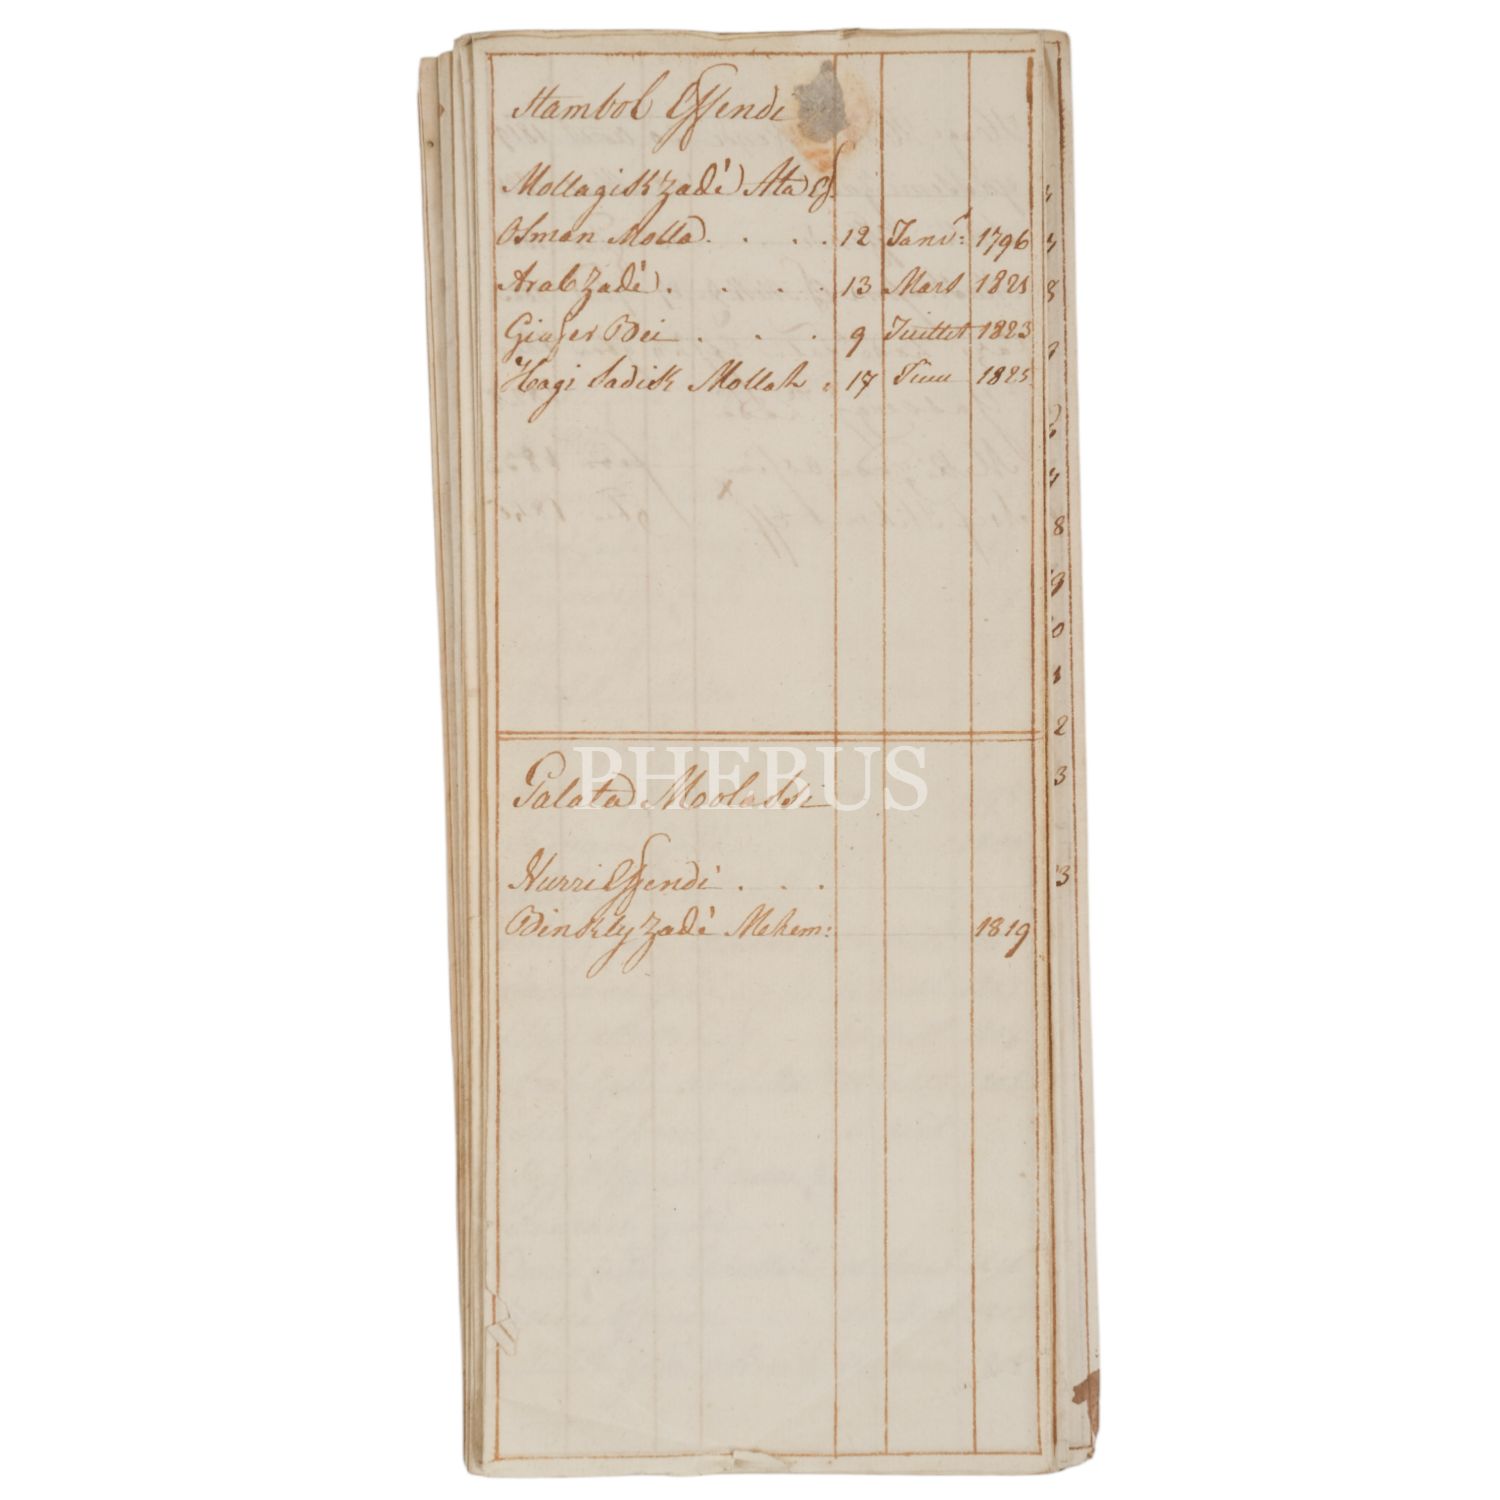 Stambol Effendi
Mollagikzadé Ata Ef.
Osman Molla . . . . 12 Janv: 1796
Arabzadé . . . . 13 Mars 1821
Giafer Bei . . . 9 Juillet 1823
Hagi Sadik Mollah : 17 1825
PHEBUS
Galata Moolassi
Nurri Effendi . . .
Binklyzadé Mehem: 1819
8
9
0
1
2
3
3